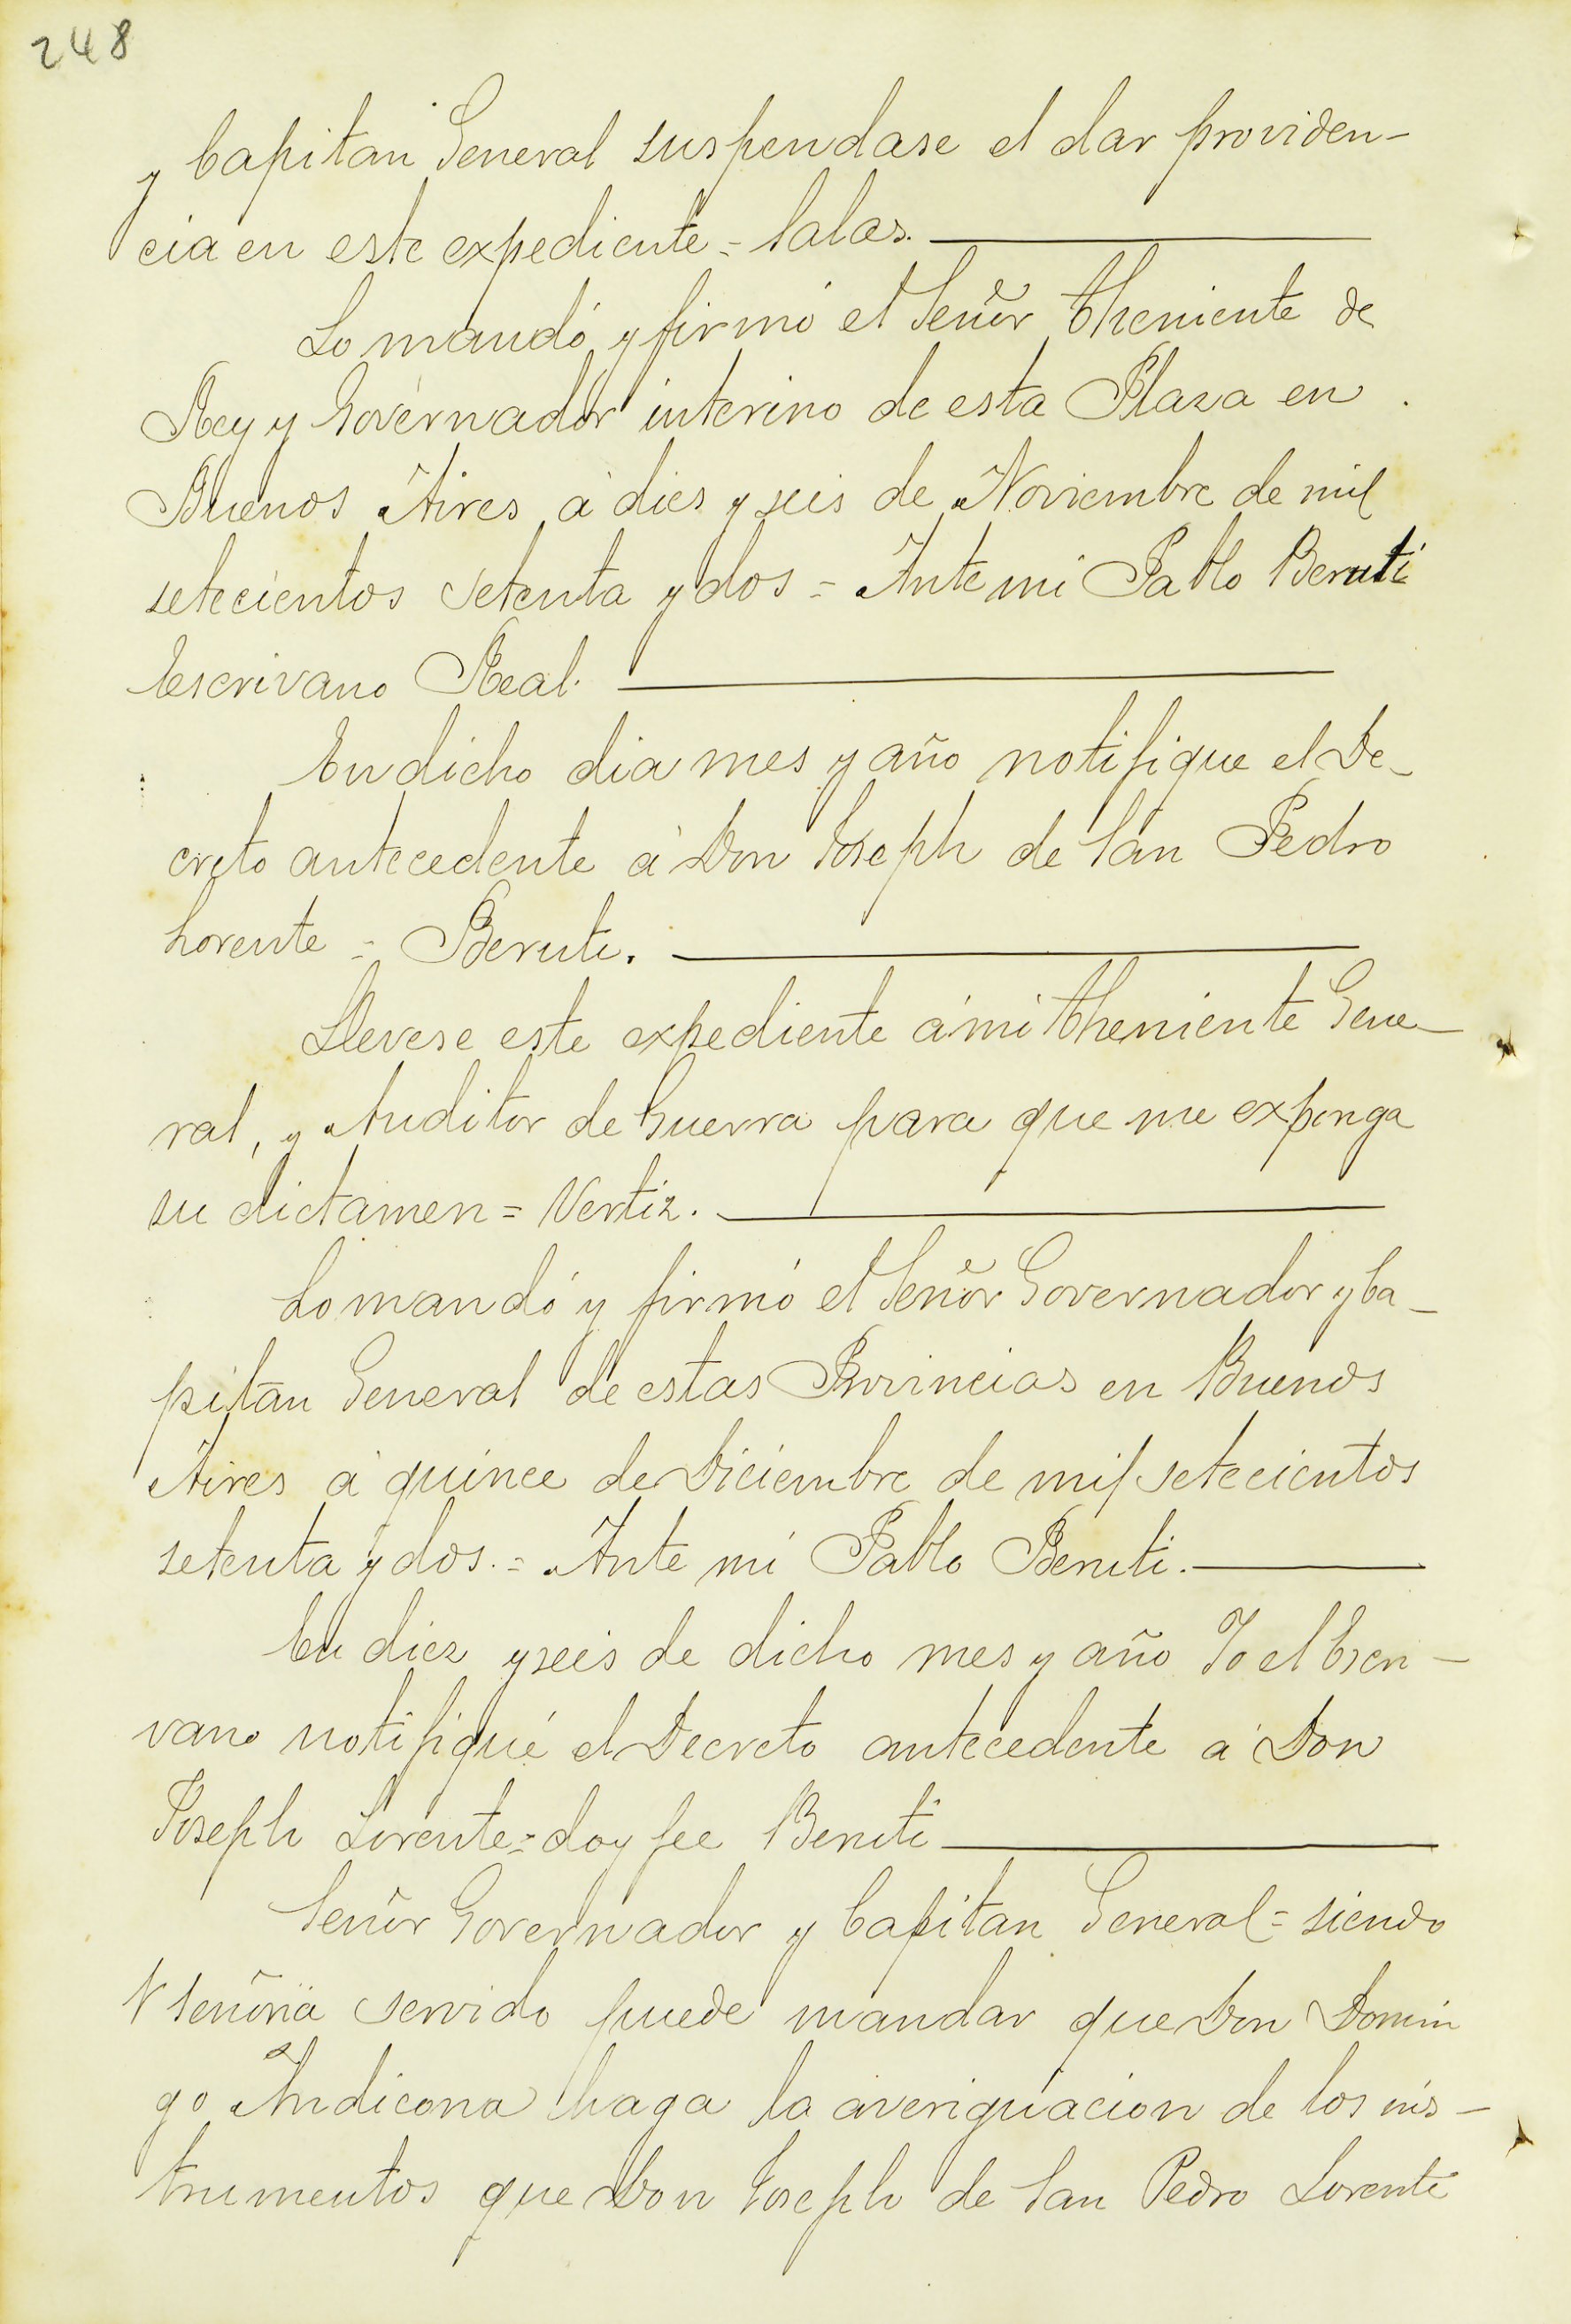 248
y Capitan General suspendase el dar providen-
cia en este expediente = Salas.
Lo mandó y firmó el Señor Theniente de
Rey y Governador interino de esta Plaza en
Buenos Aires á dies y seis de Noviembre de mil
setecientos setenta y dos = Ante mi Pablo Beruti
Escrivano Real.
En dicho dia mes y año notifique el De-
creto antecedente á Don Joseph de San Pedro
Lorente = Beruti.
Llevese este expediente á mi Theniente Gene-
ral, y Auditor de Guerra para que me exponga
su dictamen = Vertiz.
Lo mandó y firmó el Señor Governador y Ca-
pitan General de estas Provincias en Buenos
Aires á quince de Diciembre de mil setecientos
setenta y dos. = Ante mi Pablo Beruti.
En diez y seis de dicho mes y año Yo el Escri-
vano notifiqué el Decreto antecedente á Don
Joseph Lorente = doy fee Beruti
Señor Governador y Capitan General = siendo
V Señoria servido puede mandar que Don Domin
go Andicona haga la averiguacion de los ins-
trumentos que Don Joseph de San Pedro Lorente